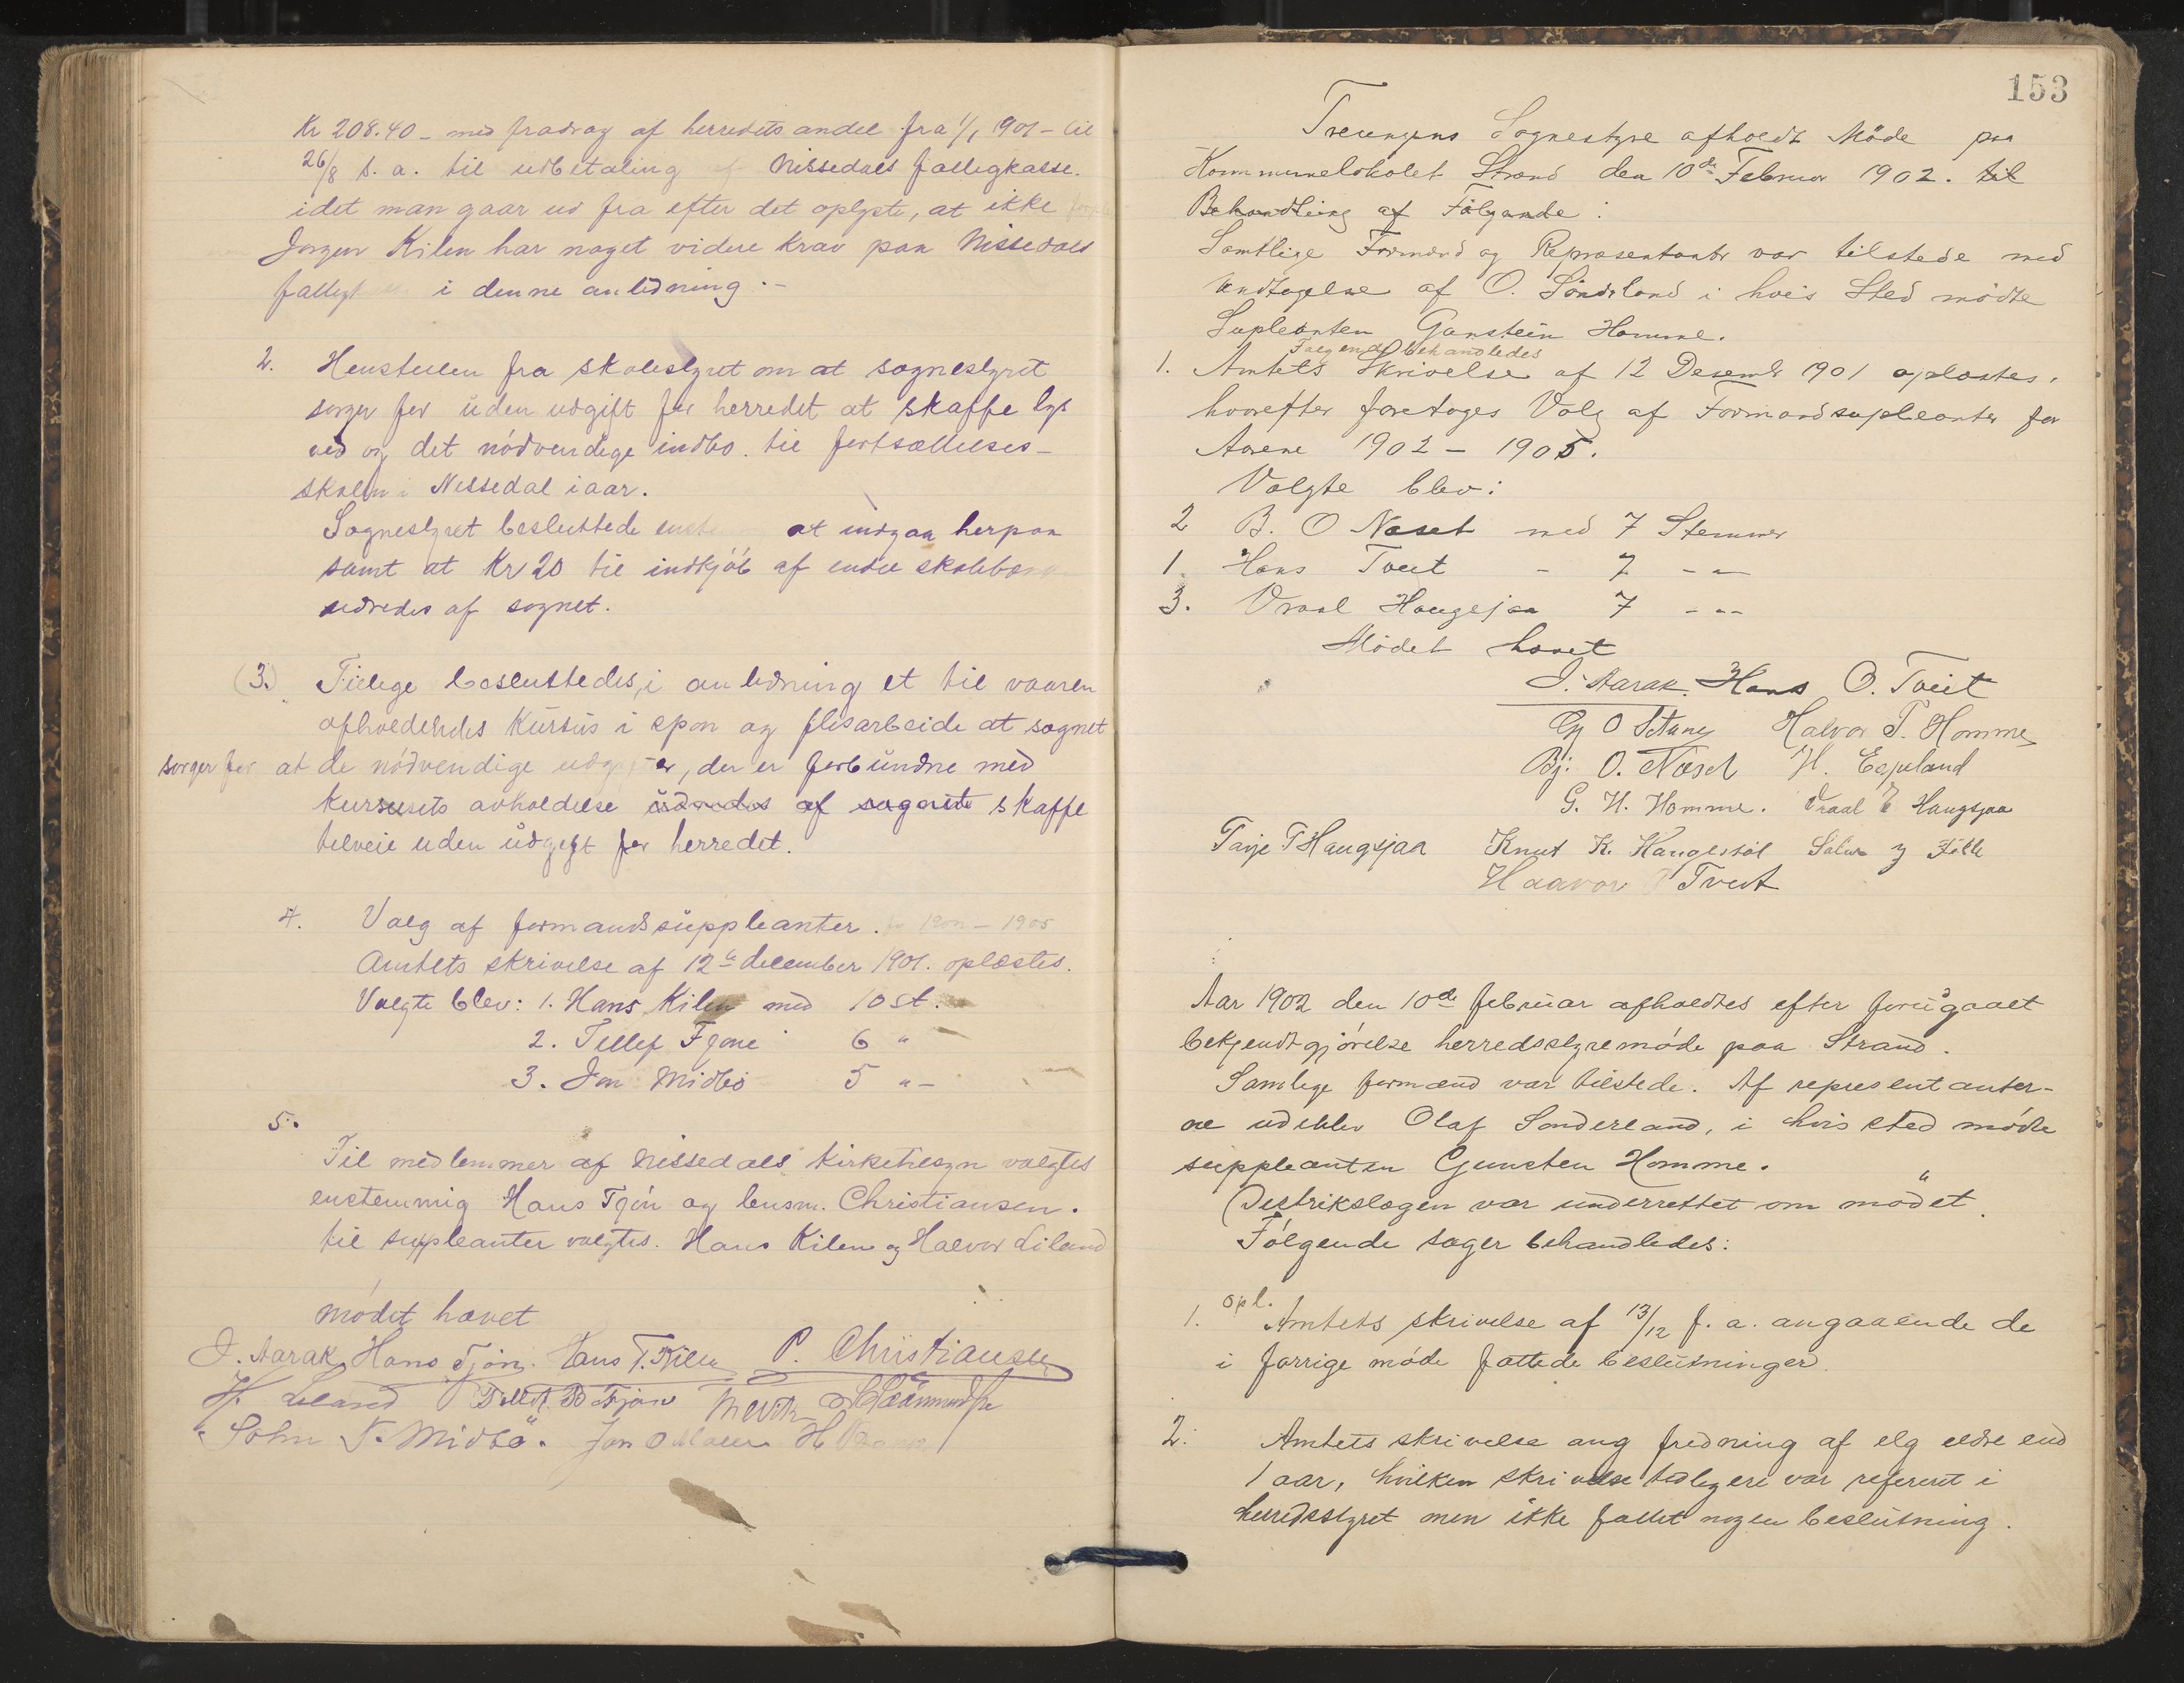 Kr 208.40 - med fradrag af herredets andel fra 1/1 1901 - til
26/8 s. a. til udbetaling af Nissedals fattigkasse.
idet man gaar ud fra efter det oplyste, at ikke
Jorgen Kilen har noget videre krav paa Nissedals
i denne anledning.-
2. Henstillen fra skolestyret om at sognestyret
sorger for uden udgift for herredet at skaffe lys
ved og det nödvendige indbo. til fortsættelses-
skolen i Nissedal iaar.
Sognestyret besluttede at indgaa herpaa
samt at Kr 20 til indkjöb af
udredes af sognet.
(3.) Tillige besluttedes, i anledning et til vaaren
afholdendes Kursus i spon og flisarbeide at sognet
sorger for at de nödvendige, der er forbundne med
kursusets avholdelse udredes af sognets skaffe
tilveie uden udgift for herredet.
4. Valg af formandssuppleanter. for 1902 - 1905
Amtets skrivelse af 12te december 1901. oplæstes.
Valgte blev: 1. Hans Kilen med 10 st.
2. Tellef Fjone 6 "
3. Jon Midbö 5 "-
5.
Til medlemmer af Nissedals kirketilsyn valgtes
enstemmig Hans Tjön og lensm. Christiansen.
til suppleanter valgtes. Hans Kilen og Halvor Liland
mödet hævet
J. Aarak Hans Tjön. Hans T. Kilen P. Christiansen
H. Liland
John T. Midbö.
153
Treungens Sognestyre afholdt Möde paa
Kommunelokalet Strand den 10de Februar 1902. til
Behandling af Fölgende:
Samtlige Formænd og Repræsentanter var tilstede med
Undtagelse af O. Sönderland i hvis Sted mödte
Supleanten Gunstein Homme.
Fölgende behandledes
1. Amtets Skrivelse af 12 Desembr 1901 oplæstes.
hvorefter foretoges Valg af Formandsupleanter for
Aarene 1902 - 1905.
Valgte blev:
2 B. O Næset med 7 Stemmer
1. Hans Tveit - 7 - "-
3. Vraal Haugsjaa 7 - "-
Mödet hævet
J. Aarak. Hans O. Tveit
Halvor T. Homme
Bj: O. Næset H. Espeland
G. H. Homme. Vraal Haugsjaa
Tarje T Haugsjaa Knut K.
Haavor Tveit
Aar 1902 den 10de februar afholdtes efter forudgaaet
bekjendtgjörelse herredsstyremöde paa Strand.
Samlige formænd var tilstede. Af representanter-
ne udeblev Olaf Sönderland, i hvis sted mödte
suppleanten Gunsten Homme.
Distrikslægen var underrettet om mödet.
Fölgende sager behandledes:
1. opl. Amtets skrivelse af 13/12 f. a. angaaende de
i forrige möde fattede beslutninger.
2. Amtets skrivelse ang fredning af elg eldre end
1 aar, hvilken skrivelse tidligere var refereret i
herredsstyret men ikke fattet nogen beslutning.